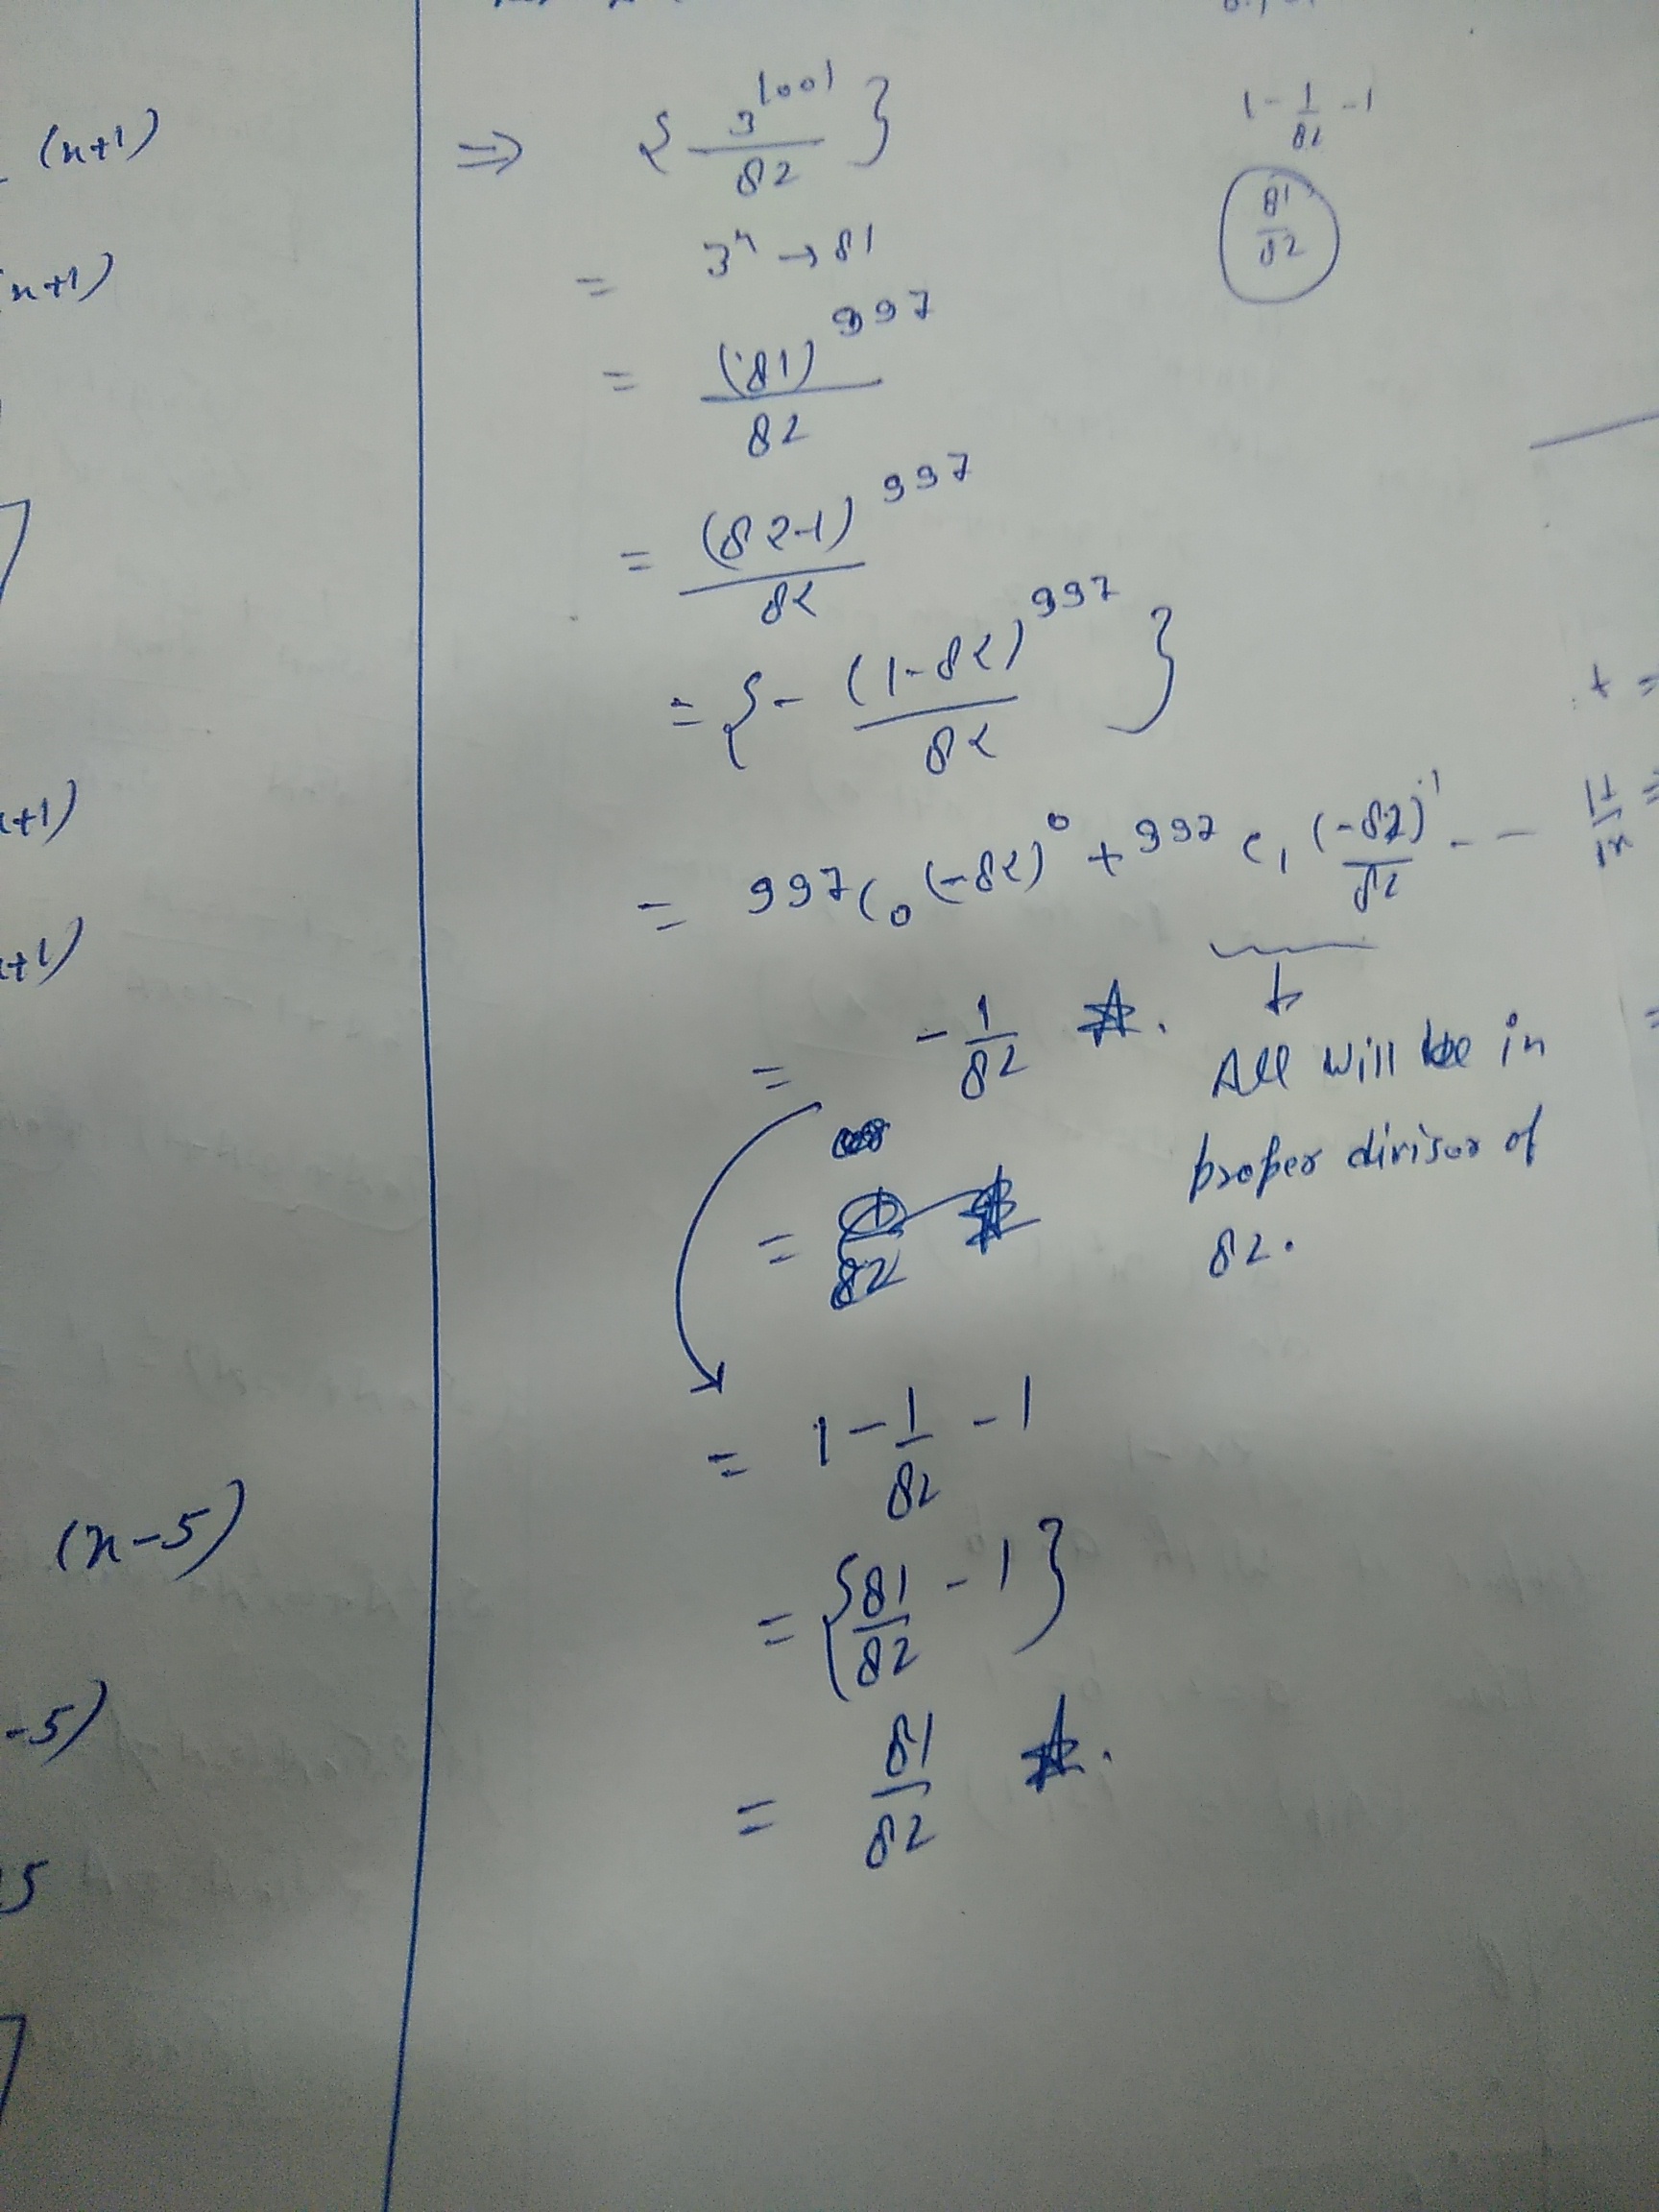 (n+1)
n+1)
+1)
+1)
(n-5)
-5)
5
⇒ {3^1001/82}
= 3^4 → 81
= (81)^997/82
= (82-1)^997/82
= {- (1-82)^997/82}
= 997C0 (-82)^0 + 997C1 (-82)^1/82 - -
= - 1/82
All will be in
proper divisor of
82.
= 1 - 1/82 - 1
= {81/82 - 1}
= 81/82
1 - 1/82 - 1
81/82
t =